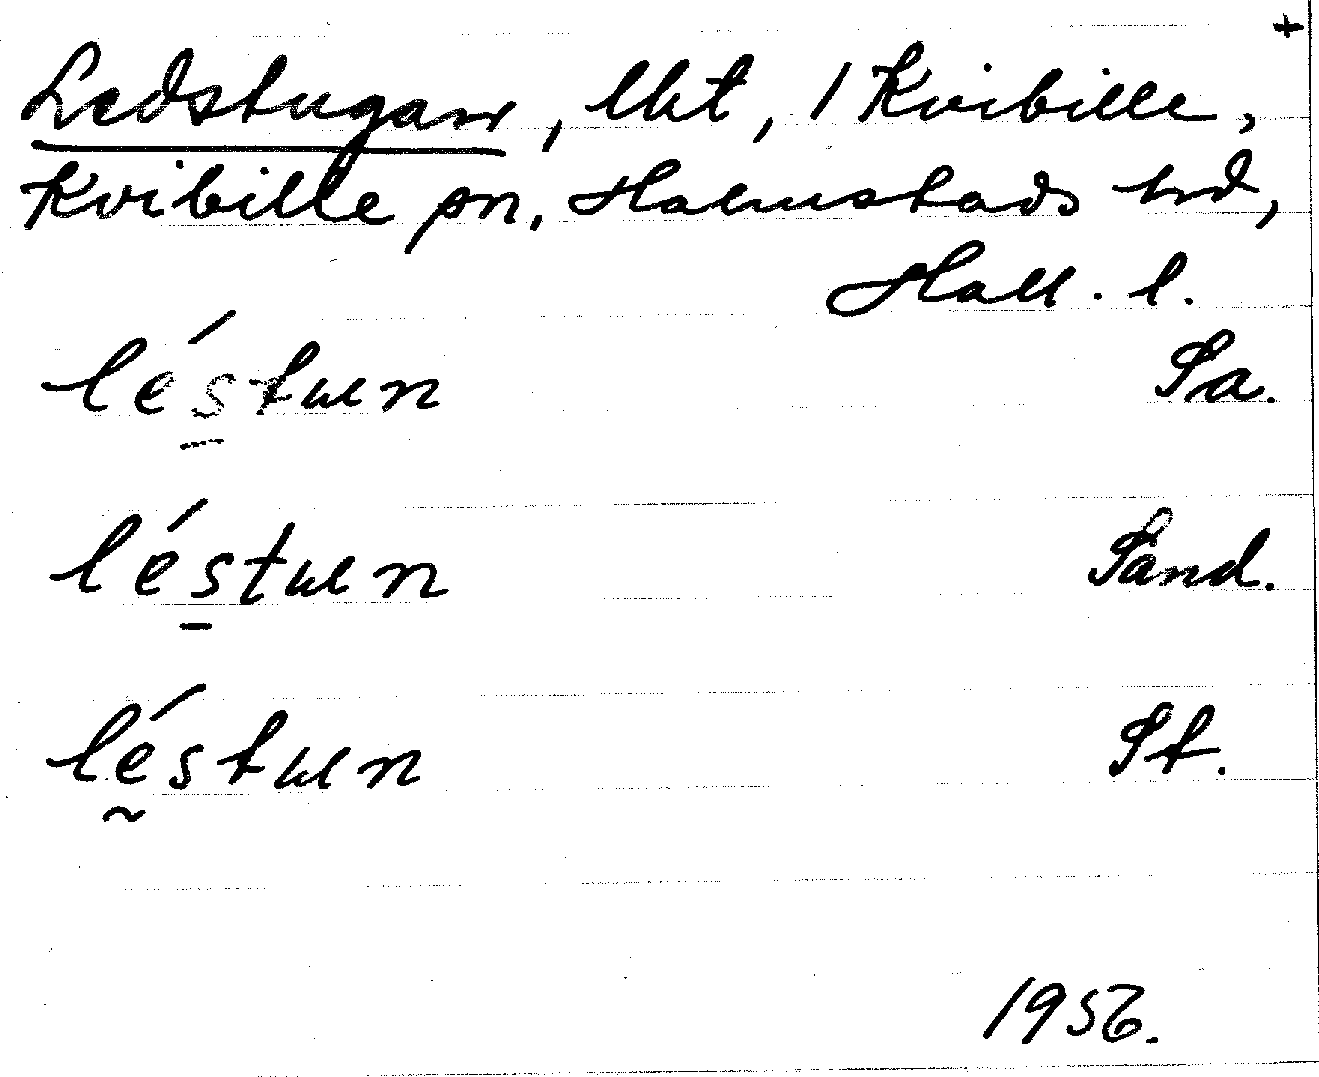 +
Ledstugan, lht, 1 Kvibille,
Kvibille sn, Halmstads hd,
Hall. l.
léstuen Sa.
léstuen Sand.
léstuen St.
1956.